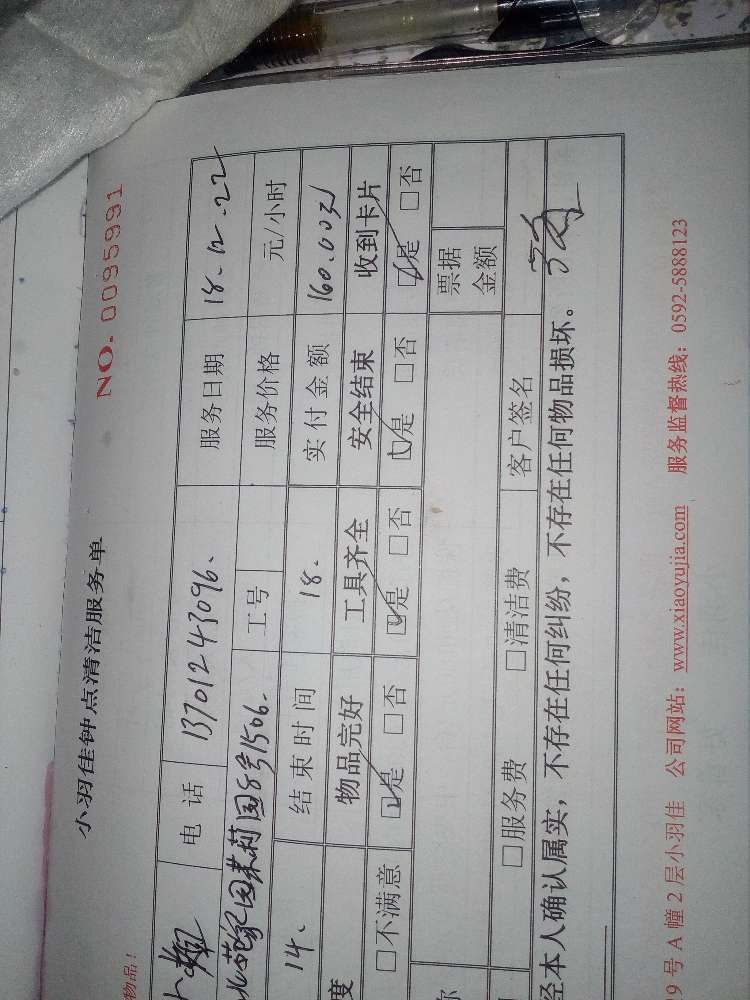 小羽佳钟点清洁服务单 NO. 0095991
物品！
电话 13701243096. 服务日期 18.12.22
北苑家园茉莉园8号1506. 工号 服务价格 元/小时
14. 结束时间 18. 实付金额 160.00
度 物品完好 工具齐全 安全结束 收到卡片
□不满意 □是 □否 □是 □否 □是 □否 □是 □否
票据
金额
□服务费 □清洁费 客户签名
经本人确认属实，不存在任何纠纷，不存在任何物品损坏。
9号A幢2层小羽佳 公司网站：www.xiaoyujia.com 服务监督热线：0592-5888123